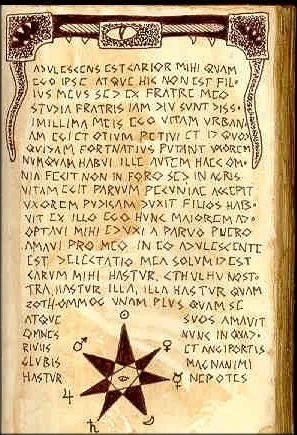 ADVLESCENS EST CARIOR MIHI QVAM
EGO IPSE ATQVE HIC NON EST FIL·
IVS MEVS SED EX FRATRE MEO
STVDIA FRATRIS IAM DIV SVNT DISS·
IMILLIMA MEIS EGO VITAM VRBAN
AM EGI ET OTIVM PETIVI ET ID QVOD
QVIDAM FORTVNATIVS PVTANT VXOREM
NVMQVAM HABVI ILLE AVTEM HAEC OM·
NIA FECIT NON IN FORO SED IN AGRIS
VITAM EGIT PARVVM PECVNIAE ACCEPIT
VXOREM PVDICAM DVXIT FILIOS HAB·
VIT EX ILLO EGO HVNC MAIOREM AD·
OPTAVI MIHI EDVXI A PARVO PVERO
AMAVI PRO MEO IN EO ADVLESCENTE
EST DELECTATIO MEA SOLVM ID EST
CARVM MIHI HASTVR, CTHVLHV NOST·
TRA, HASTVR ILLA, ILLA HASTVR QVAM
ZOTH-OMMOG VNAM PLVS QVAM SE
ATQVE SVOS AMAVIT
OMNES NVNC IN QVAD·
RIVIIS ET ANGIPORTIS
GLVBIS MAGNANIMI
HASTVR NEPOTES